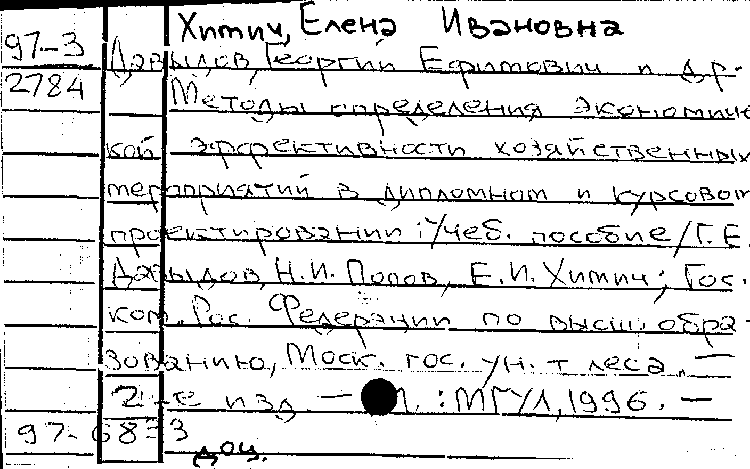 Химич, Елена Ивановна
97-3 Давыдов, Георгий Ефимович и др.
2784 Методы определения экономичес
кой эффективности хозяйственных
мероприятий в дипломном и курсовом
проектировании: Учеб. пособие/Г.Е.
Давыдов, Н.И. Попов, Е.И. Химич; Гос.
ком. Рос. Федерации по высш. обра-
зованию, Моск. гос. ун-т леса. —
2-е изд. — М.: МГУЛ, 1996. —
97-6833
доц.